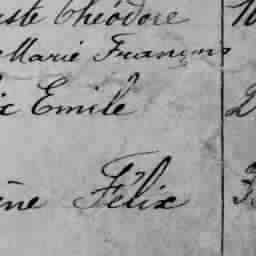 iste Théodore
Marie François
ix Emile
ène Félix